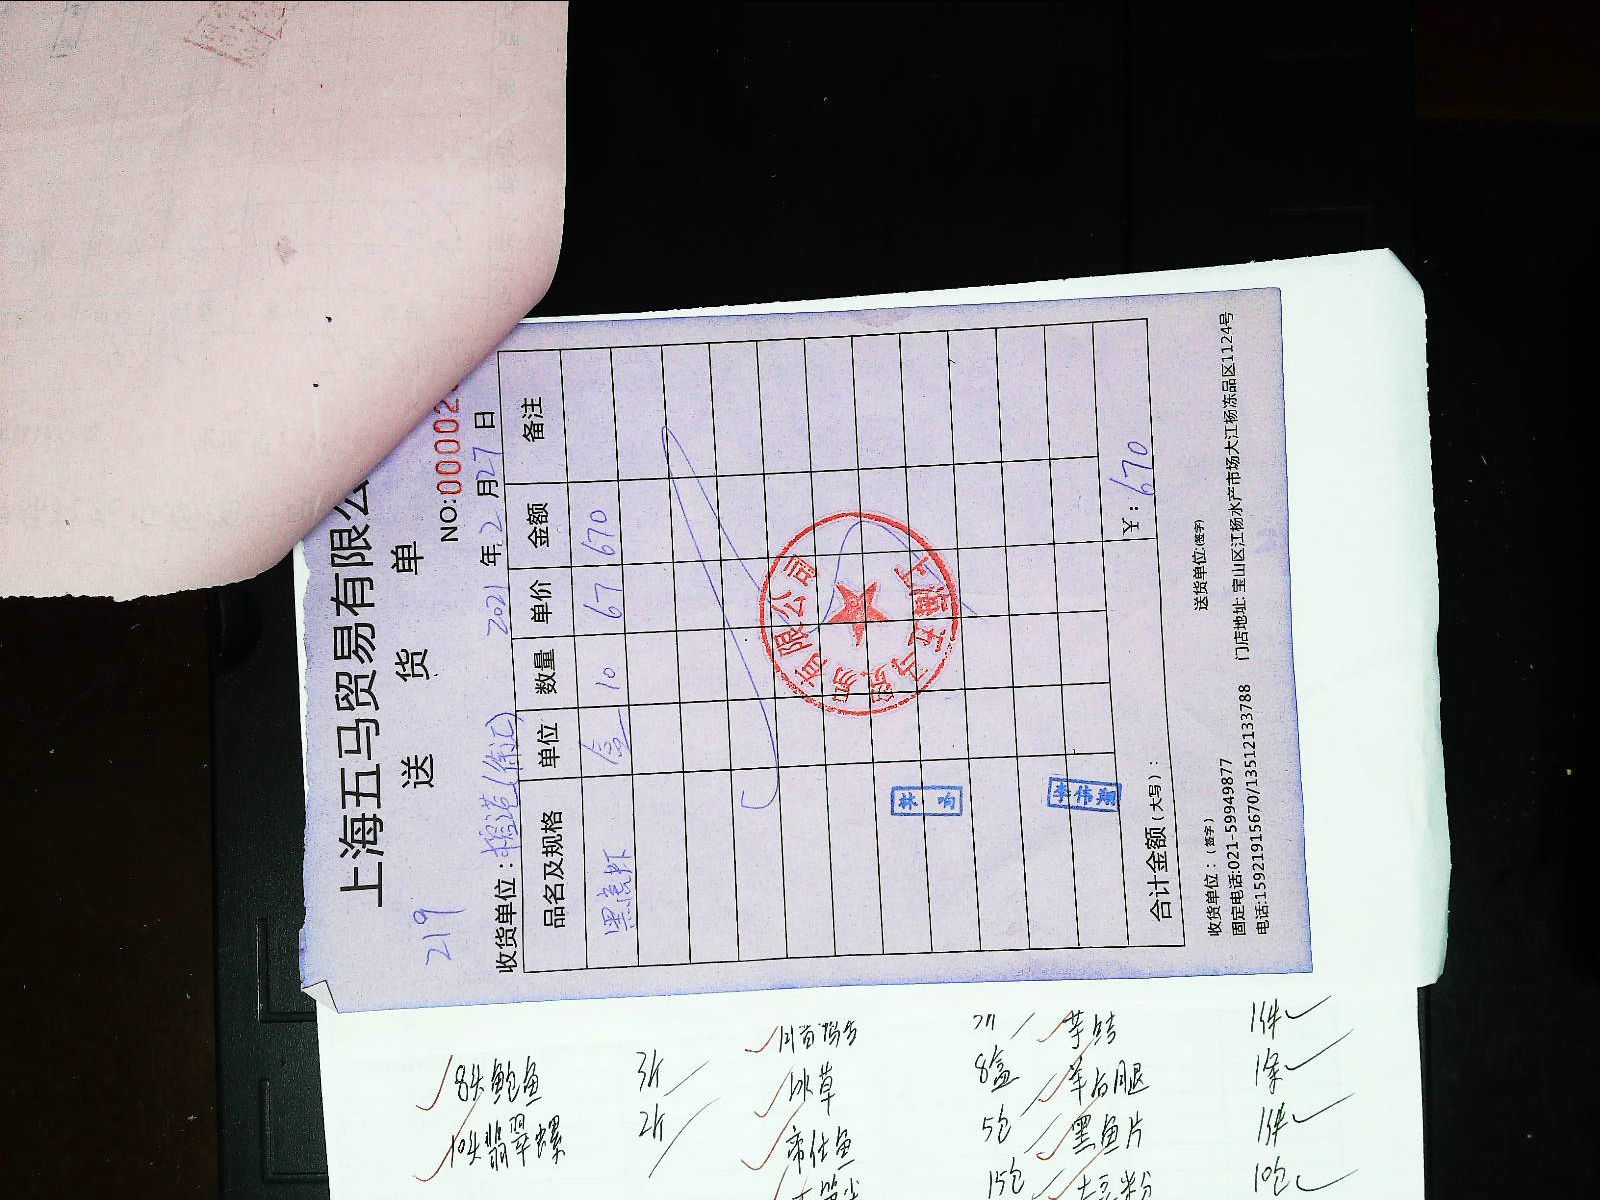 上海五马贸易有限公
送 货 单
NO:00002
219
收货单位: (徐汇) 2021 年 2 月 27 日
品名及规格 单位 数量 单价 金额 备注
黑虎虾 盒 10 67 670
上海五马贸易有限公司
林 响
李伟翔
合计金额(大写): ¥: 670
收货单位:(签字) 送货单位:(签字)
固定电话:021-59949877 门店地址: 宝山区江杨水产市场大江杨冻品区1124号
电话:15921915670/13512133788
8头鲍鱼 3斤
10头翡翠螺 2斤
冰草 8盒
5包
15包
1件
1条
黑鱼片 1件
10包